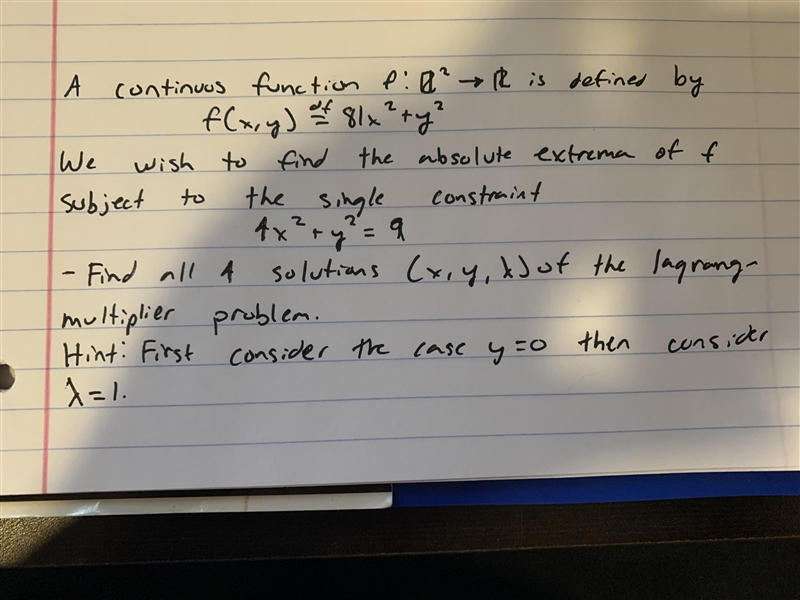 A continuos function f: ℝ² → ℝ is defined by
f(x,y) ≝ 81x² + y²
We wish to find the absolute extrema of f
subject to the single constraint
4x² + y² = 9
- Find all 4 solutions (x, y, λ) of the lagrang-
multiplier problem.
Hint: First consider the case y=0 then consider
λ=1.